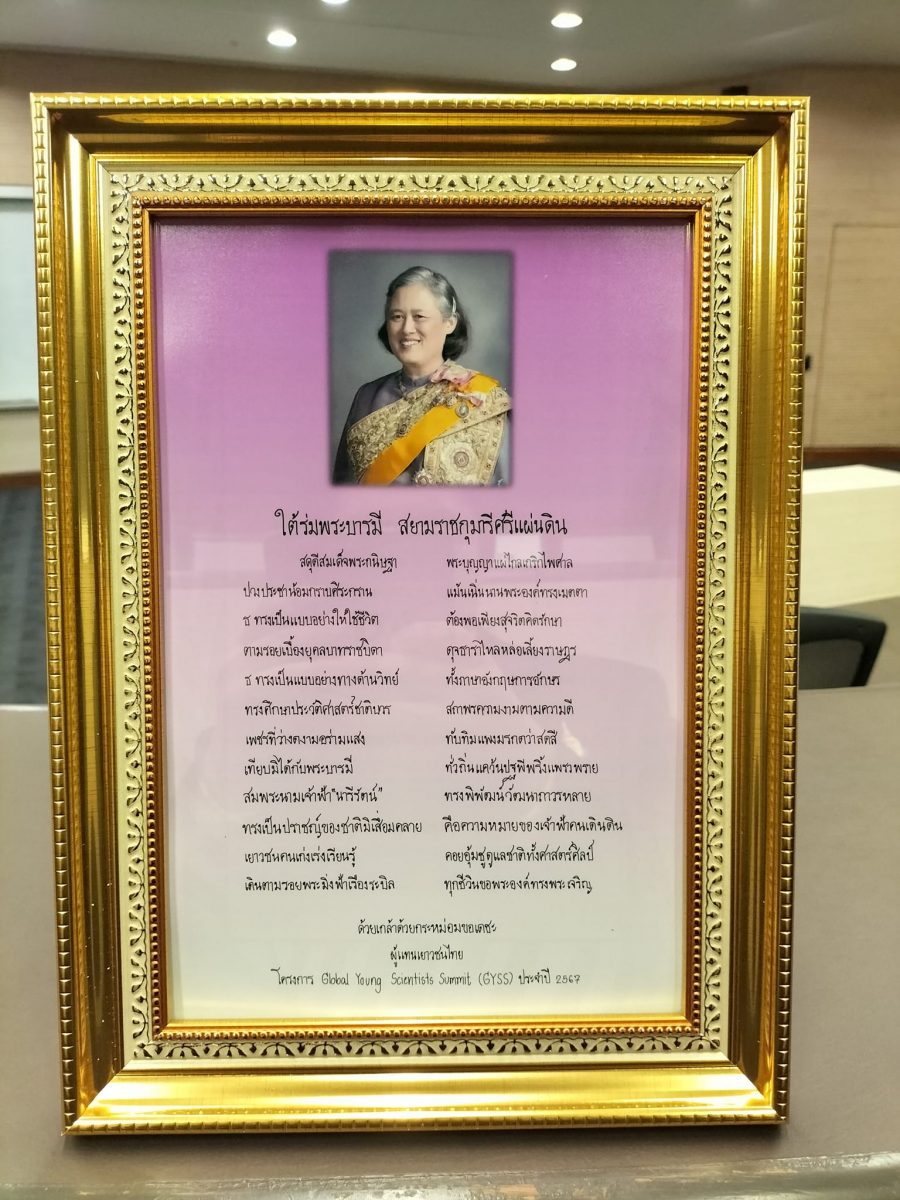 ใต้ร่มพระบารมี สยามราชกุมารีศรีแผ่นดิน
สดุดีสมเด็จพระกนิษฐา พระบุญญาแผ่ไกลเกริกไพศาล
ปวงประชาน้อมกราบศิระกราน แม้นเนิ่นนานพระองค์ทรงเมตตา
ธ ทรงเป็นแบบอย่างให้ใช้ชีวิต ต้องพอเพียงสุจริตคิดรักษา
ตามรอยเบื้องยุคลบาทราชบิดา ดุจธาราไหลหล่อเลี้ยงราษฎร
ธ ทรงเป็นแบบอย่างทางด้านวิทย์ ทั้งภาษาอังกฤษการอักษร
ทรงศึกษาประวัติศาสตร์ สถาพรความงามตามความดี
เพชรที่ว่างดงามอร่ามแสง ทับทิมแพงมรกตว่าสดสี
เทียบมิได้กับพระบารมี ทั่วถิ่นแคว้นปฐพีพริ้งแพรวพราย
สมพระนามเจ้าฟ้า"นารีรัตน์" ทรงพิพัฒน์วัฒนาถาวรหลาย
ทรงเป็นปราชญ์ของชาติมิเสื่อมคลาย คือความหมายของเจ้าฟ้าคนเดินดิน
เยาวชนคนเก่งเร่งเรียนรู้ คอยอุ้มชูดูแลชาติทั้งศาสตร์ศิลป์
เดินตามรอยพระมิ่งฟ้าเรืองระบิล ทุกชีวินขอพระองค์ทรงพระเจริญ
ด้วยเกล้าด้วยกระหม่อมขอเดชะ
ผู้แทนเยาวชนไทย
โครงการ Global Young Scientists Summit (GYSS) ประจำปี 2567